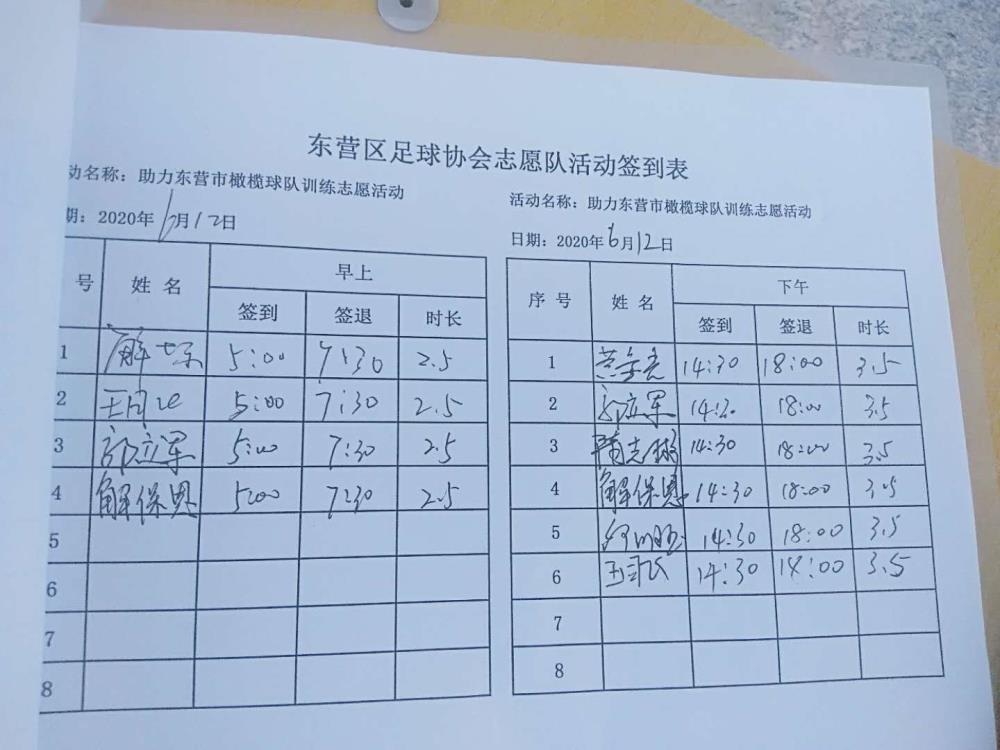 东营区足球协会志愿队活动签到表
动名称：助力东营市橄榄球队训练志愿活动
期：2020年6月12日
号 姓名 早上
签到 签退 时长
1 5:00 7:30 2.5
2 5:00 7:30 2.5
3 郭立军 5:00 7:30 2.5
4 解保恩 5:00 7:30 2.5
5
6
7
8
活动名称：助力东营市橄榄球队训练志愿活动
日期：2020年6月12日
序号 姓名 下午
签到 签退 时长
1 14:30 18:00 3.5
2 郭立军 18:00 3.5
3 14:30 18:00 3.5
4 解保恩 14:30 18:00 3.5
5 14:30 18:00 3.5
6 14:30 3.5
7
8